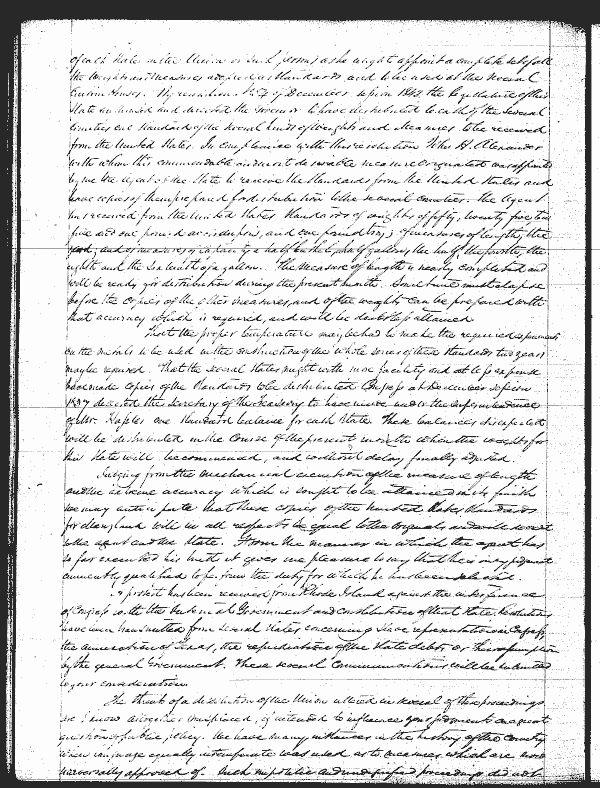 of each State in the Union or such person as he might appoint a complete set of all
the weights and measures adopted as standards, and to be used at the several
Custom Houses. By resolution No. of December session 1842 the Legislature of this
State authorised and directed the Governor to have distributed to each of the several
Counties one standard of the several kinds of weights and measures to be received
from the United States. In compliance with this resolution John H. Alexander
with whom this commendable and most desirable measure originated was appointed
by me the agent of the State to receive the standards from the United States and
have copies of them prepared for distribution to the several Counties. The Agent
has received from the United States standards of weights of fifty, twenty five, ten
five and one pound avoirdupois, and one pound troy; of measures of length, the
yard, and of measures of capacity a half bushel, half gallon, the half, the fourth, the
eighth and the sixteenth of a gallon. The measure of length is nearly completed and
will be ready for distribution during the present month. Some time must elapse
before the copies of the other measures and of the weights can be prepared with
that accuracy which is required, and will be doubtless attained.
That the proper temperature may be had to make the required experiments
on the metals to be used in the construction of the whole series of these standards two years
may be required. That the several States might with more facility and at less expense
have made copies of the standards to be distributed Congress at December session
1837 directed the Secretary of the Treasury to have made under the superintendence
of Mr. Hassler one standard balance for each State. These balances it is expected
will be distributed in the course of the present month when the weights for
this State will be commenced, and without delay finally adjusted.
Judging from the mechanical execution of the measure of length
and the extreme accuracy which is sought to be attained in its finish
we may anticipate that these copies of the United States standards
for Maryland will in all respects be equal to the originals and will do credit
to the agent and the State. From the manner in which the agent has
so far executed his trust it gives me pleasure to say that he is in my judgment
eminently qualified to perform the duty for which he has been selected.
A protest has been received from Rhode Island against the interference
of Congress with the internal Government and constitution of that State. Resolutions
have been transmitted from several States concerning slave representation in Congress,
the annexation of Texas, the repudiation of the State debts, or their assumption
by the general Government. These several communications will be submitted
to your consideration.
The threat of a dissolution of the Union uttered in several of these proceedings
is I know altogether unexpected, if intended to influence your judgment on a great
question of public policy. We have many instances in the history of the Country
when language equally intemperate was used as to measures which are now
universally approved of. Such impolitic and unjustified proceedings did not